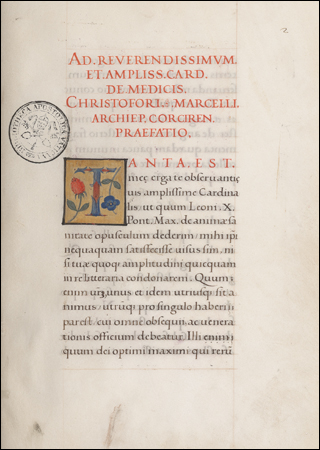 2
AD. REVERENDISSIMVM.
ET. AMPLISS. CARD.
DE MEDICIS.
CHRISTOFORI. MARCELLI.
ARCHIEP. CORCIREN.
PRAEFATIO.
TANTA. EST.
meç erga te obseruantiç
uis amplissime Cardina
lis ut quum Leoni. X.
Pont. Max. de animæ sa
nitate opusculum dederim mihi ipi
nequaquam satisfecisse uisus sim. ni
si tuæ quoq; amplitudini quicquam
in re litteraria condonarem. Quum
enim unus et idem utriusq; sit a
nimus utriq; pro singulo haberi
par est. cui omne obsequium ac uenera
tionis officium debeatur. Illi enim
quum dei optimi maximi qui rerū